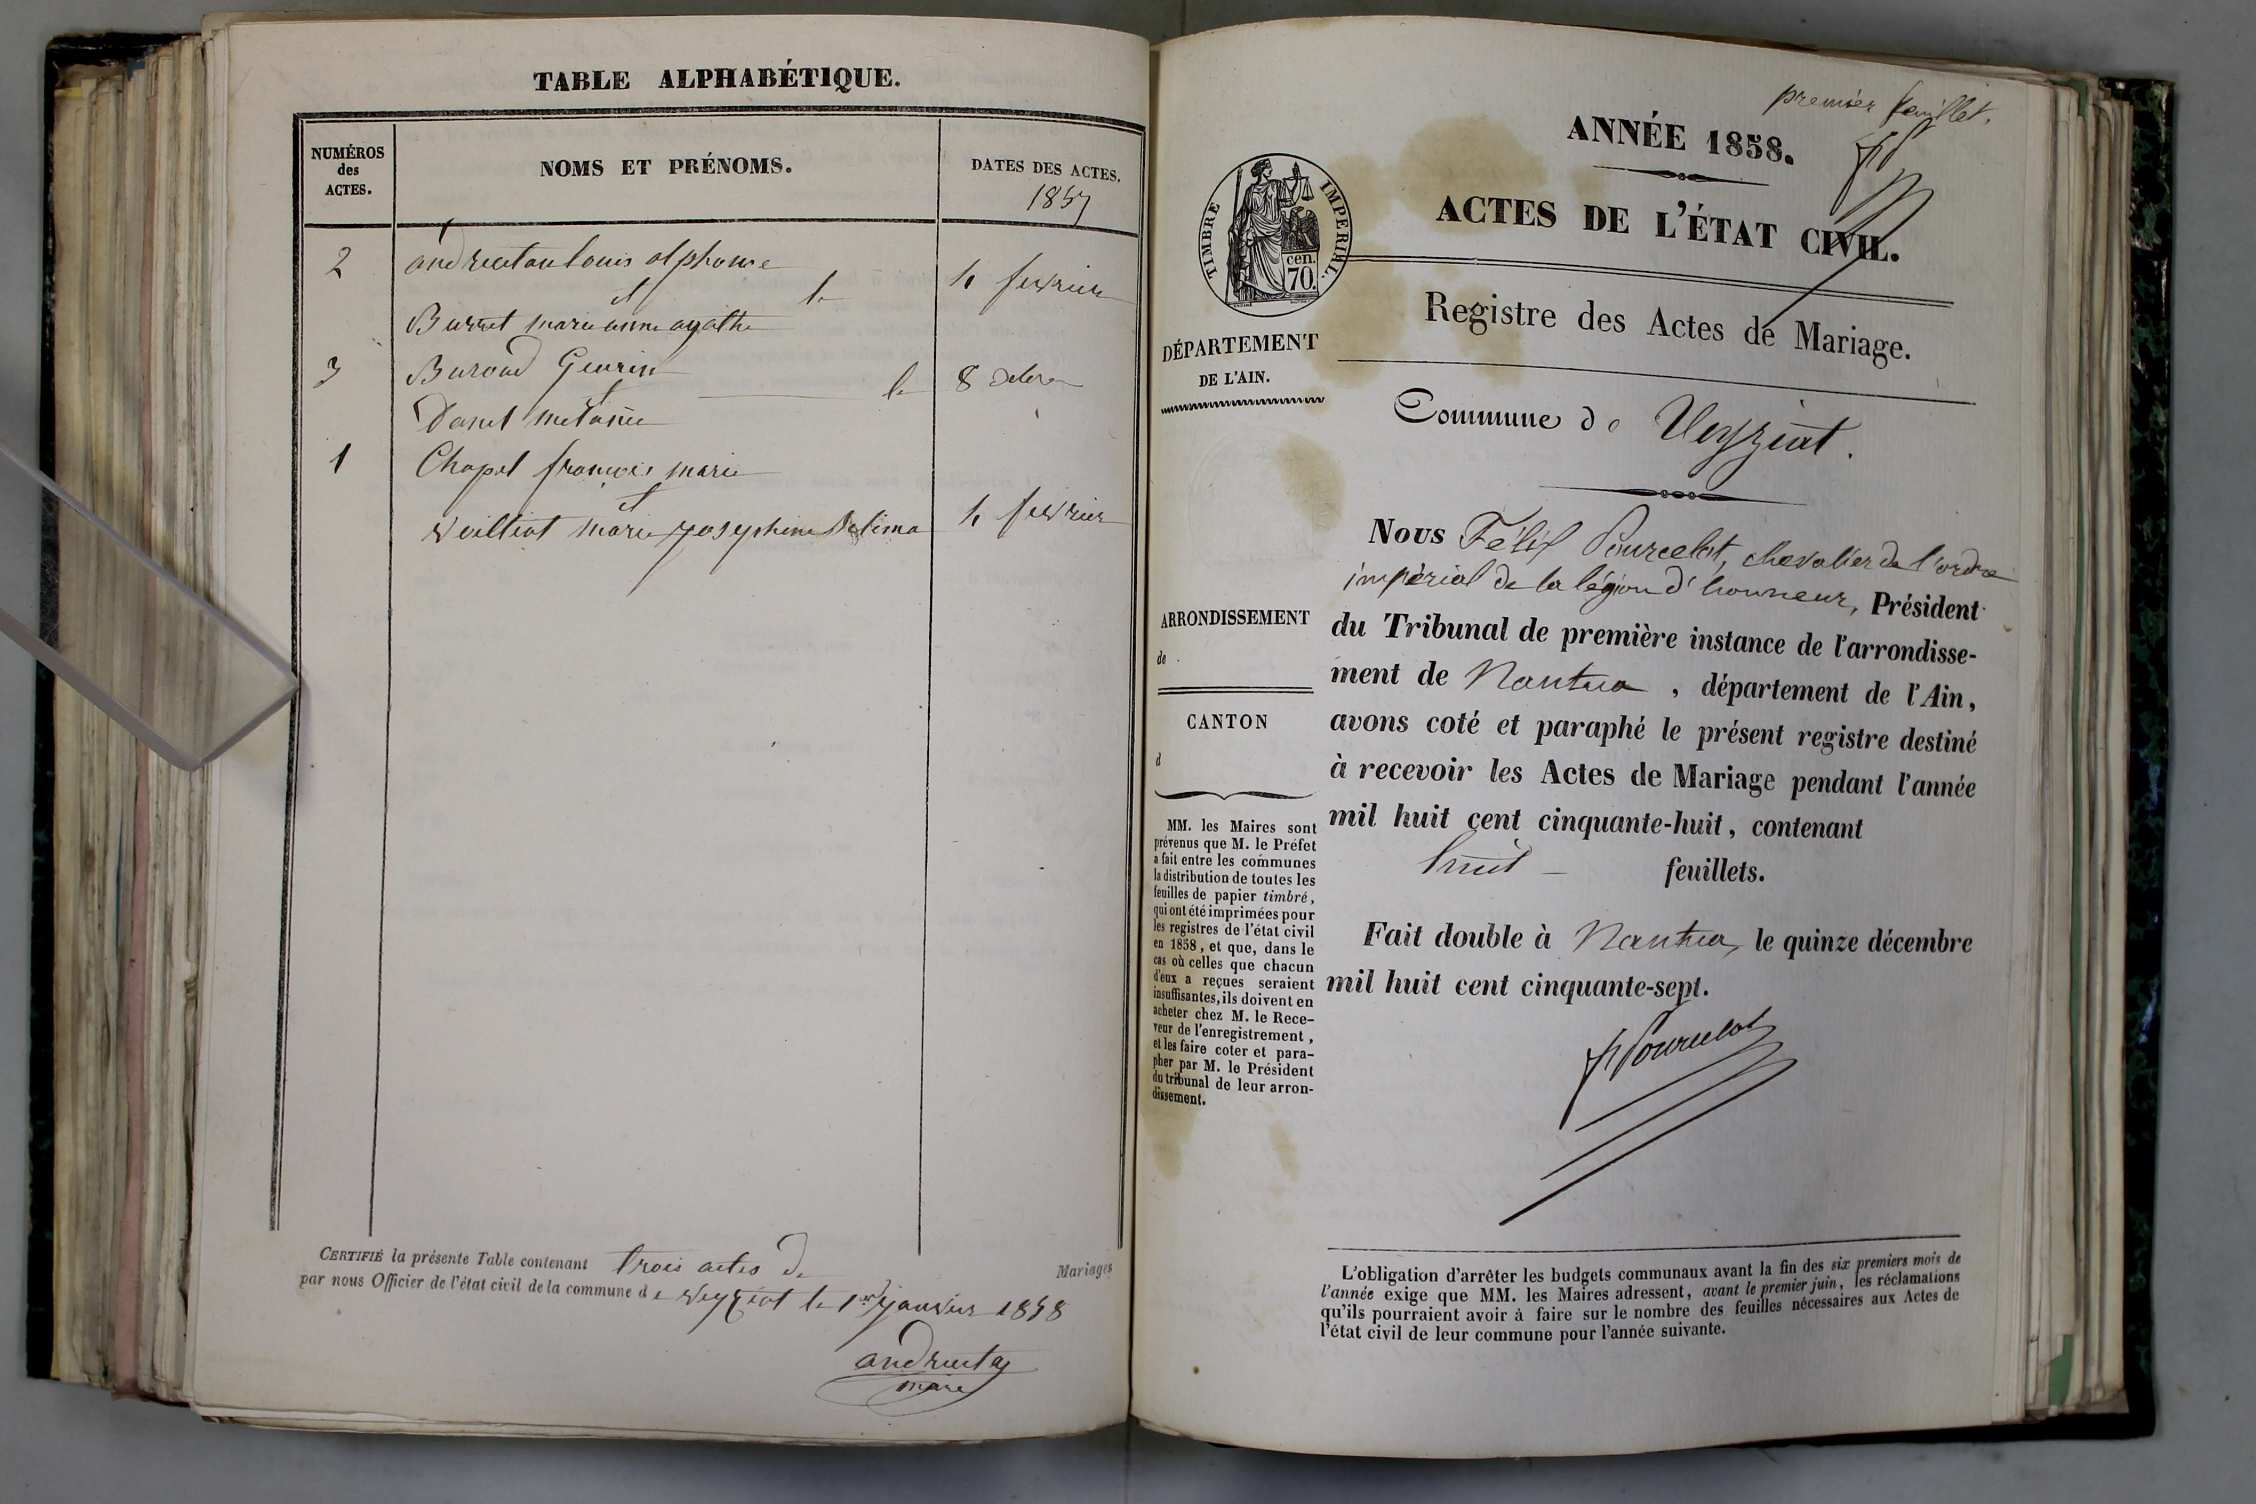 TABLE ALPHABÉTIQUE.
NUMÉROS
des
ACTES.
NOMS ET PRÉNOMS.
DATES DES ACTES.
1857
2 andruetan louis alphonse
et le 4 fevrier
Burret marie anne agathe
3 Buroud Geurin
et le 8
Danet melanie
1 Chapel françois marie
et
veilliat marie josephine Delima 4 fevrier
CERTIFIÉ la présente Table contenant trois actes de Mariages
par nous Officier de l'état civil de la commune de veyziat le 1er janvier 1858
maire
premier feuillet.
ANNÉE 1858.
ACTES DE L'ÉTAT CIVIL.
TIMBRE IMPERIAL.
cen.
70.
Registre des Actes de Mariage.
DÉPARTEMENT
DE L'AIN.
Commune de Veyziat.
Nous Félix Pourcelot, chevalier de l'ordre
impérial de la légion d'honneur, Président
du Tribunal de première instance de l'arrondisse-
ment de Nantua, département de l'Ain,
avons coté et paraphé le présent registre destiné
à recevoir les Actes de Mariage pendant l'année
mil huit cent cinquante-huit, contenant
huit feuillets.
Fait double à Nantua, le quinze décembre
mil huit cent cinquante-sept.
f Pourcelot
ARRONDISSEMENT
de
CANTON
d
MM. les Maires sont
prévenus que M. le Préfet
a fait entre les communes
la distribution de toutes les
feuilles de papier timbré,
qui ont été imprimées pour
les registres de l'état civil
en 1858, et que, dans le
cas où celles que chacun
d'eux a reçues seraient
insuffisantes, ils doivent en
acheter chez M. le Rece-
veur de l'enregistrement,
et les faire coter et para-
pher par M. le Président
du tribunal de leur arron-
dissement.
L'obligation d'arrêter les budgets communaux avant la fin des six premiers mois de
l'année exige que MM. les Maires adressent, avant le premier juin, les réclamations
qu'ils pourraient avoir à faire sur le nombre des feuilles nécessaires aux Actes de
l'état civil de leur commune pour l'année suivante.